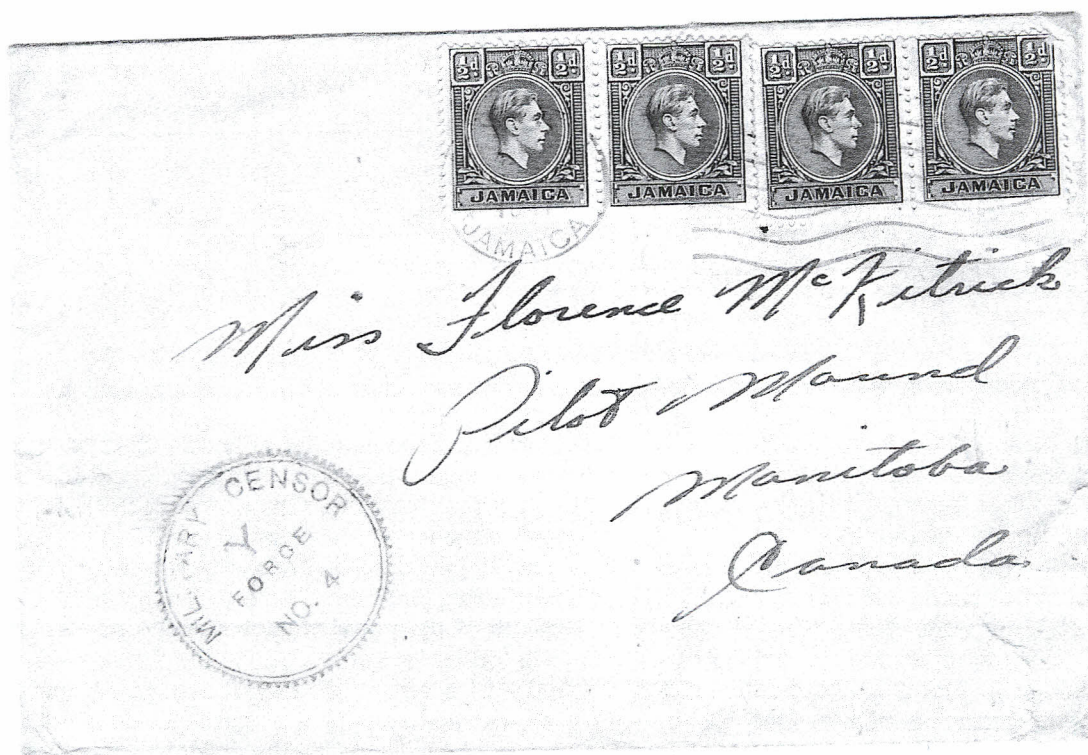 ½d ½d ½d ½d ½d ½d ½d ½d
JAMAICA JAMAICA JAMAICA JAMAICA
JAMAICA
Miss Florence McKitrick
Pilot Mound
Manitoba
Canada
MILITARY CENSOR
Y
FORCE
NO. 4